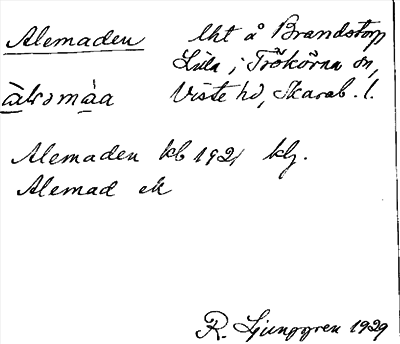 Alemaden lht å Brandstorp
Lilla i Trökörna sn,
àləmàa Viste hd, Skarab. l.
Alemaden kb 1921 klj.
Alemad ek
R. Ljunggren 1929